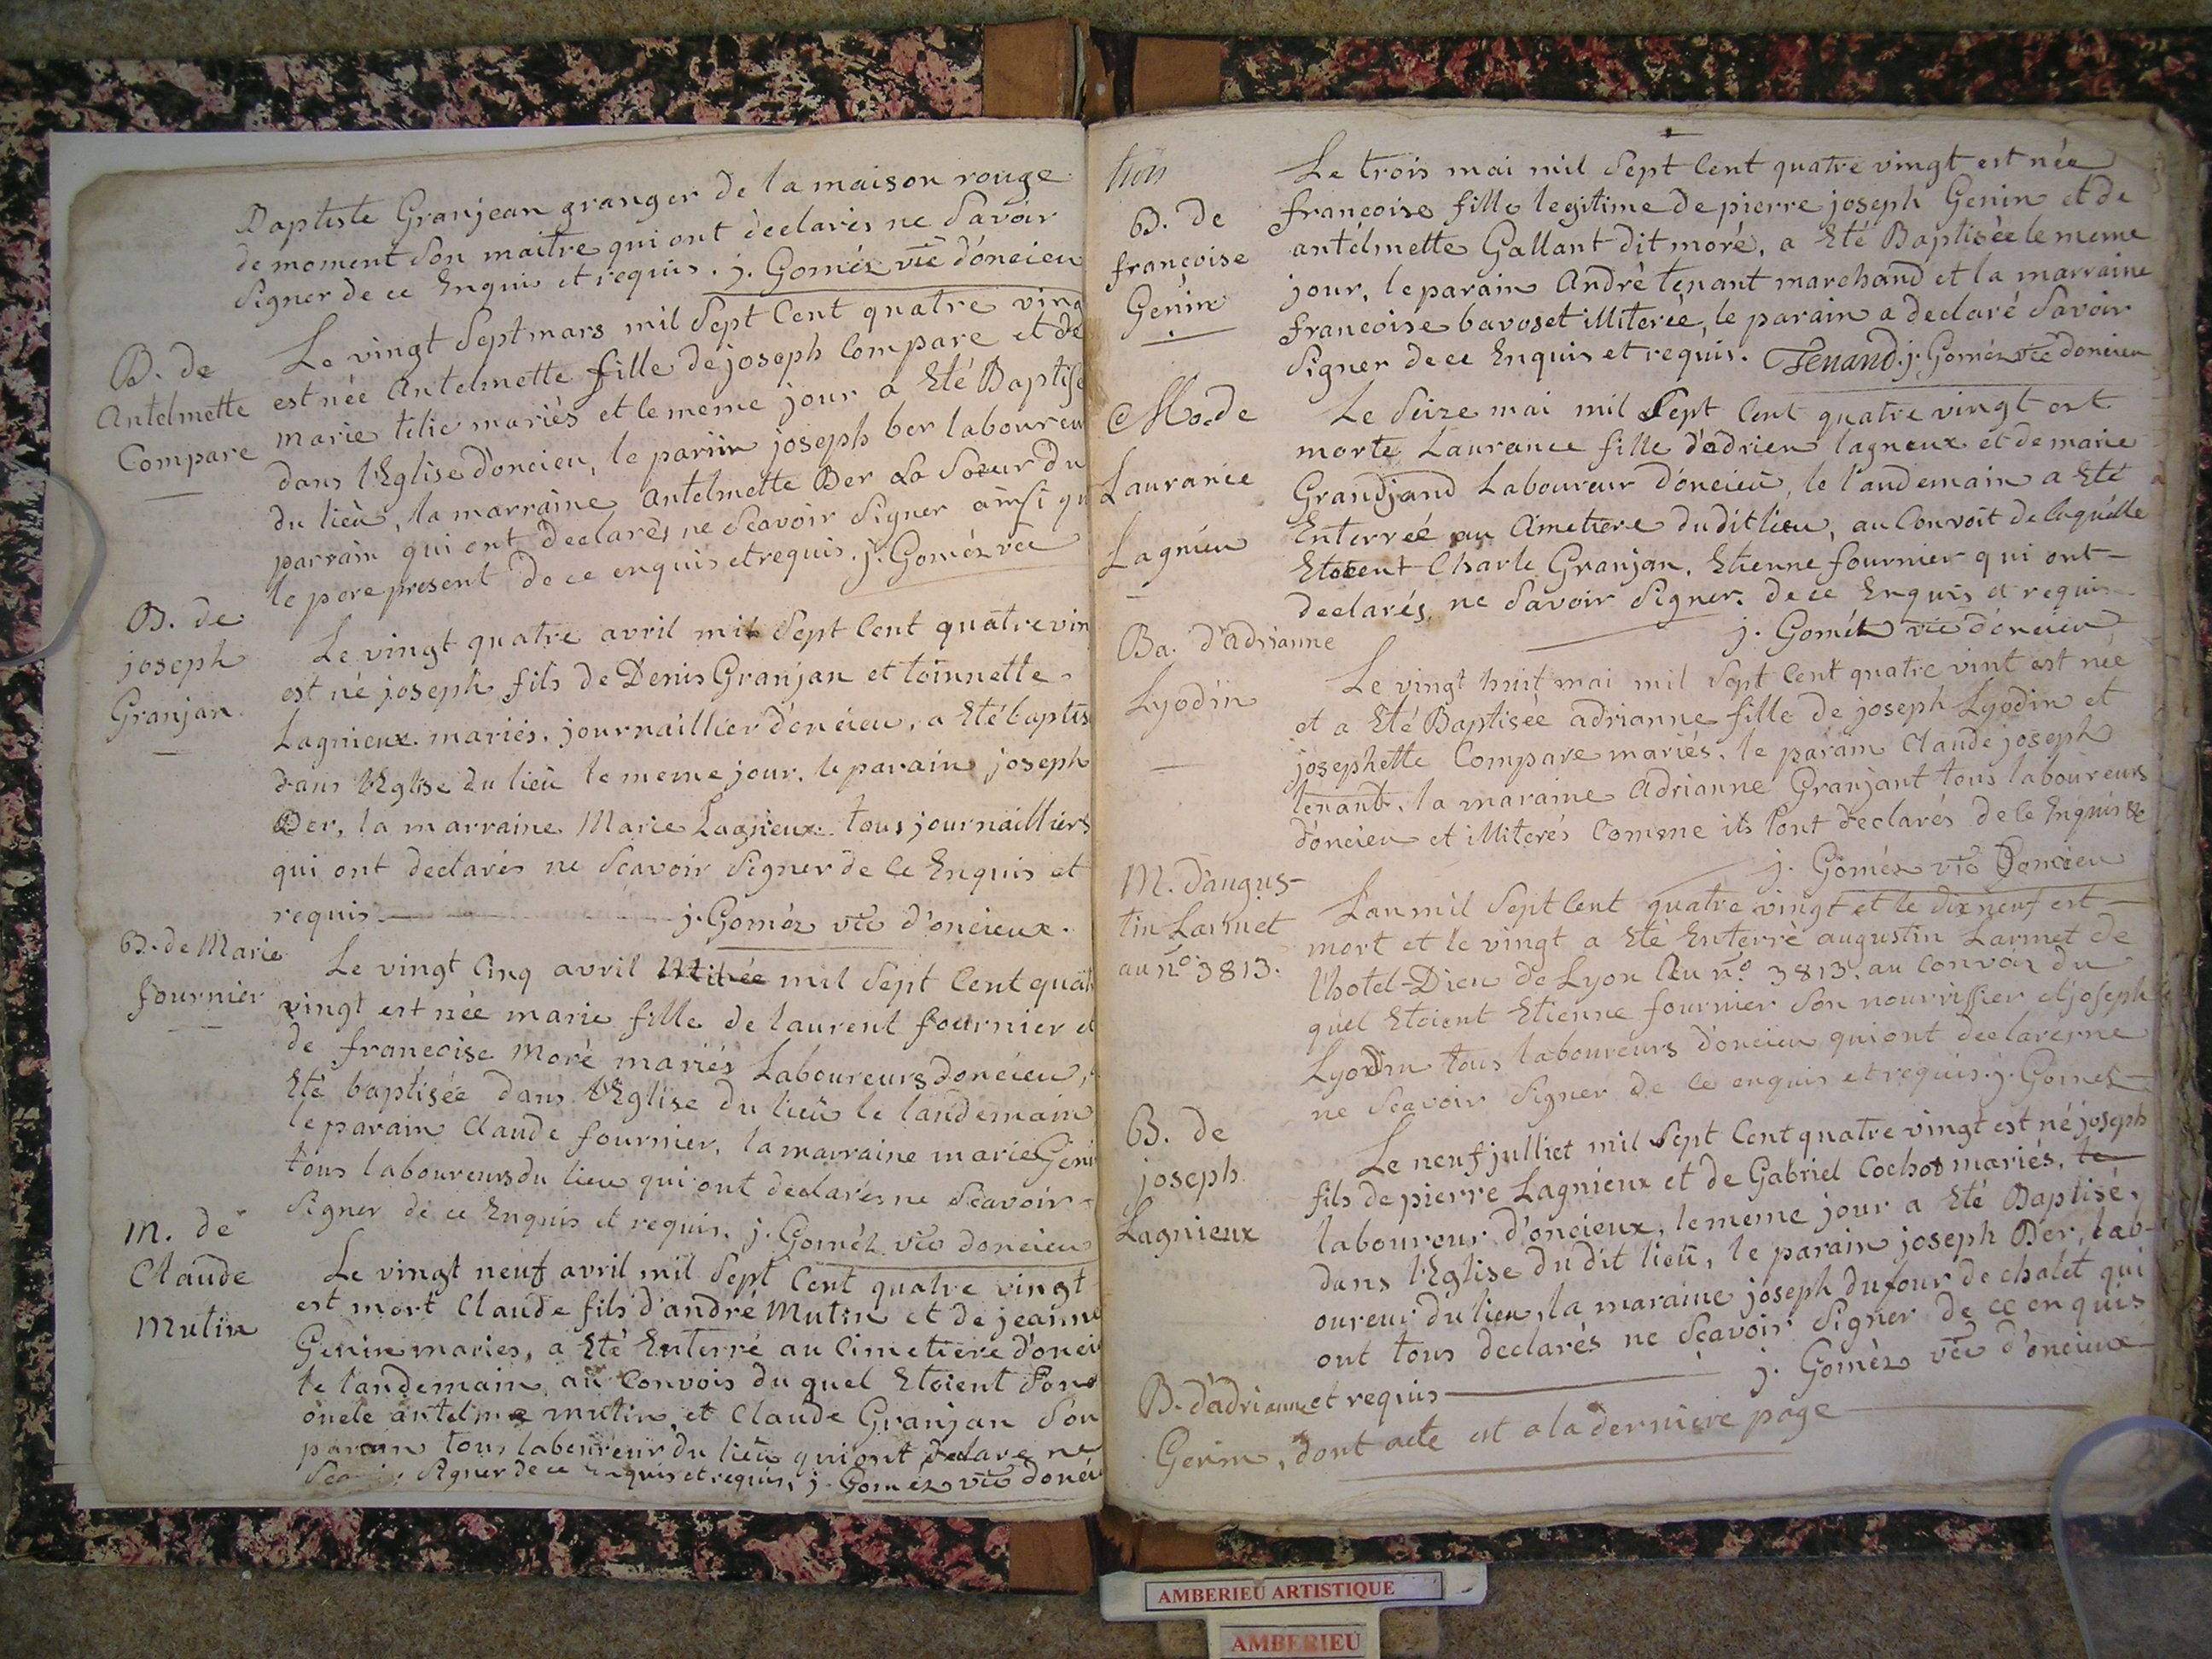 Baptiste Granjean granger de la maison rouge
de moment son maitre qui ont déclarés ne savoir
signer de ce Enquis et requis. j. Goméz vic d'oncieu
B. de
Antelmette
Compare
Le vingt sept mars mil sept Cent quatre ving
est née Antelmette fille de joseph Compare et de
marie mariés et le meme jour a Eté Baptisé
dans l'Eglise d'oncieu, le joseph ber laboureu
du lieu, la marraine antelmette Ber La Soeur du
parrain qui ont declarés ne Scavoir Signer ainsi qu
le pere present de ce enquis et requis. j. Goméz vic
B. de
joseph
Granjan
Le vingt quatre avril mil Sept Cent quatre vin
est né joseph fils de Denis Granjan et toinnette
Lagnieux mariés, journaillier d'oncieu, a Eté baptis
dans l'Eglise du lieu le meme jour. le parain joseph
Ber, la marraine Marie Lagnieux tous journailliers
qui ont declarés ne Scavoir Signer de Ce Enquis et
requis j. Goméz vic d'oncieux.
B. de Marie
fournier
Le vingt Cinq avril mil Sept Cent quat
vingt est née marie fille de laurent fournier et
de francoise Moré mariés Laboureurs doncieu,
Eté baptisée dans l'Eglise du lieu le landemain
le parain Claude fournier, la marraine marie Geni
tous laboureurs du lieu qui ont declarés ne Scavoir
Signer de ce Enquis et requis. j. Goméz vic doncieu
M. de
Claude
Mutin
Le vingt neuf avril mil Sept Cent quatre vingt
est mort Claude fils d'andré Mutin et de jeanne
Genin maries, a Eté Enterré au Cimetiere d'oncie
le landemain, au Convois du quel Etoient Son
oncle antelme mutin, et Claude Granjan Son
parain tous laboureur du lieu qui ont declare ne
Signer de ce Enquis et requis, j. Goméz vic doncie
B. de
françoise
Genin
Le trois mai mil Sept Cent quatre vingt est née
francoise fille legitime de pierre joseph Genin et de
antélmette Gallant dit moré, a Eté Baptisée le meme
jour, le parain André tenant marchand et la marraine
francoise bavoset illiterée, le parain a declaré Savoir
Signer de ce Enquis et requis. Tenand. j. Goméz vic doncieu
Mo. de
Laurance
Lagnieu
Le Seize mai mil Sept Cent quatre vingt est
morte Laurance fille d'adrien lagneux et de marie
Grandjand Laboureur d'oncieu, le landemain a Eté
Enterreé au Cimetiere du dit lieu, au Convoit de laquelle
Etoient Charle Granjan, Etienne fournier qui ont
declarés, ne Savoir Signer. de ce Enquis et requis
j. Goméz vic d'oncieu
Ba. d'adrianne
Lyodin
Le vingt huit mai mil Sept Cent quatre vint est née
et a Eté Baptisée adrianne fille de joseph Lyodin et
josephette Compare mariés, le parain Claude joseph
tenant, la maraine Adrianne Granjant tous laboureurs
d'oncieu et illiterés Comme ils l'ont declarés de Ce Enquis &c
j. Goméz vic Doncieu
M. d'augus-
tin Larmet
au no. 3813.
L'an mil Sept Cent quatre vingt et le dix neuf est
mort et le vingt a Eté Enterré augustin Larmet de
l'hotel-Dieu de Lyon au no 3813. au Convoi du
quel Etoient Etienne fournier Son nourrissier et joseph
Lyodin tous laboureurs d'oncieu qui ont declares ne
ne Scavoir Signer de Ce enquis et requis. j. Goméz
B. de
joseph
Lagnieux
Le neuf julliet mil Sept Cent quatre vingt est né joseph
fils de pierre Lagnieux et de Gabriel Cochot mariés, le
laboureur d'oncieux, le meme jour a Eté Baptisé,
dans l'Eglise du dit lieu, le parain joseph Ber, lab-
oureur du lieu, la maraine joseph dufour de chalet qui
ont tous declarés ne Scavoir Signer de ce enquis
et requis j. Goméz vic d'oncieux
B. d'adrianne
Genin, dont acte est a la derniere page
AMBERIEU ARTISTIQUE
AMBERIEU